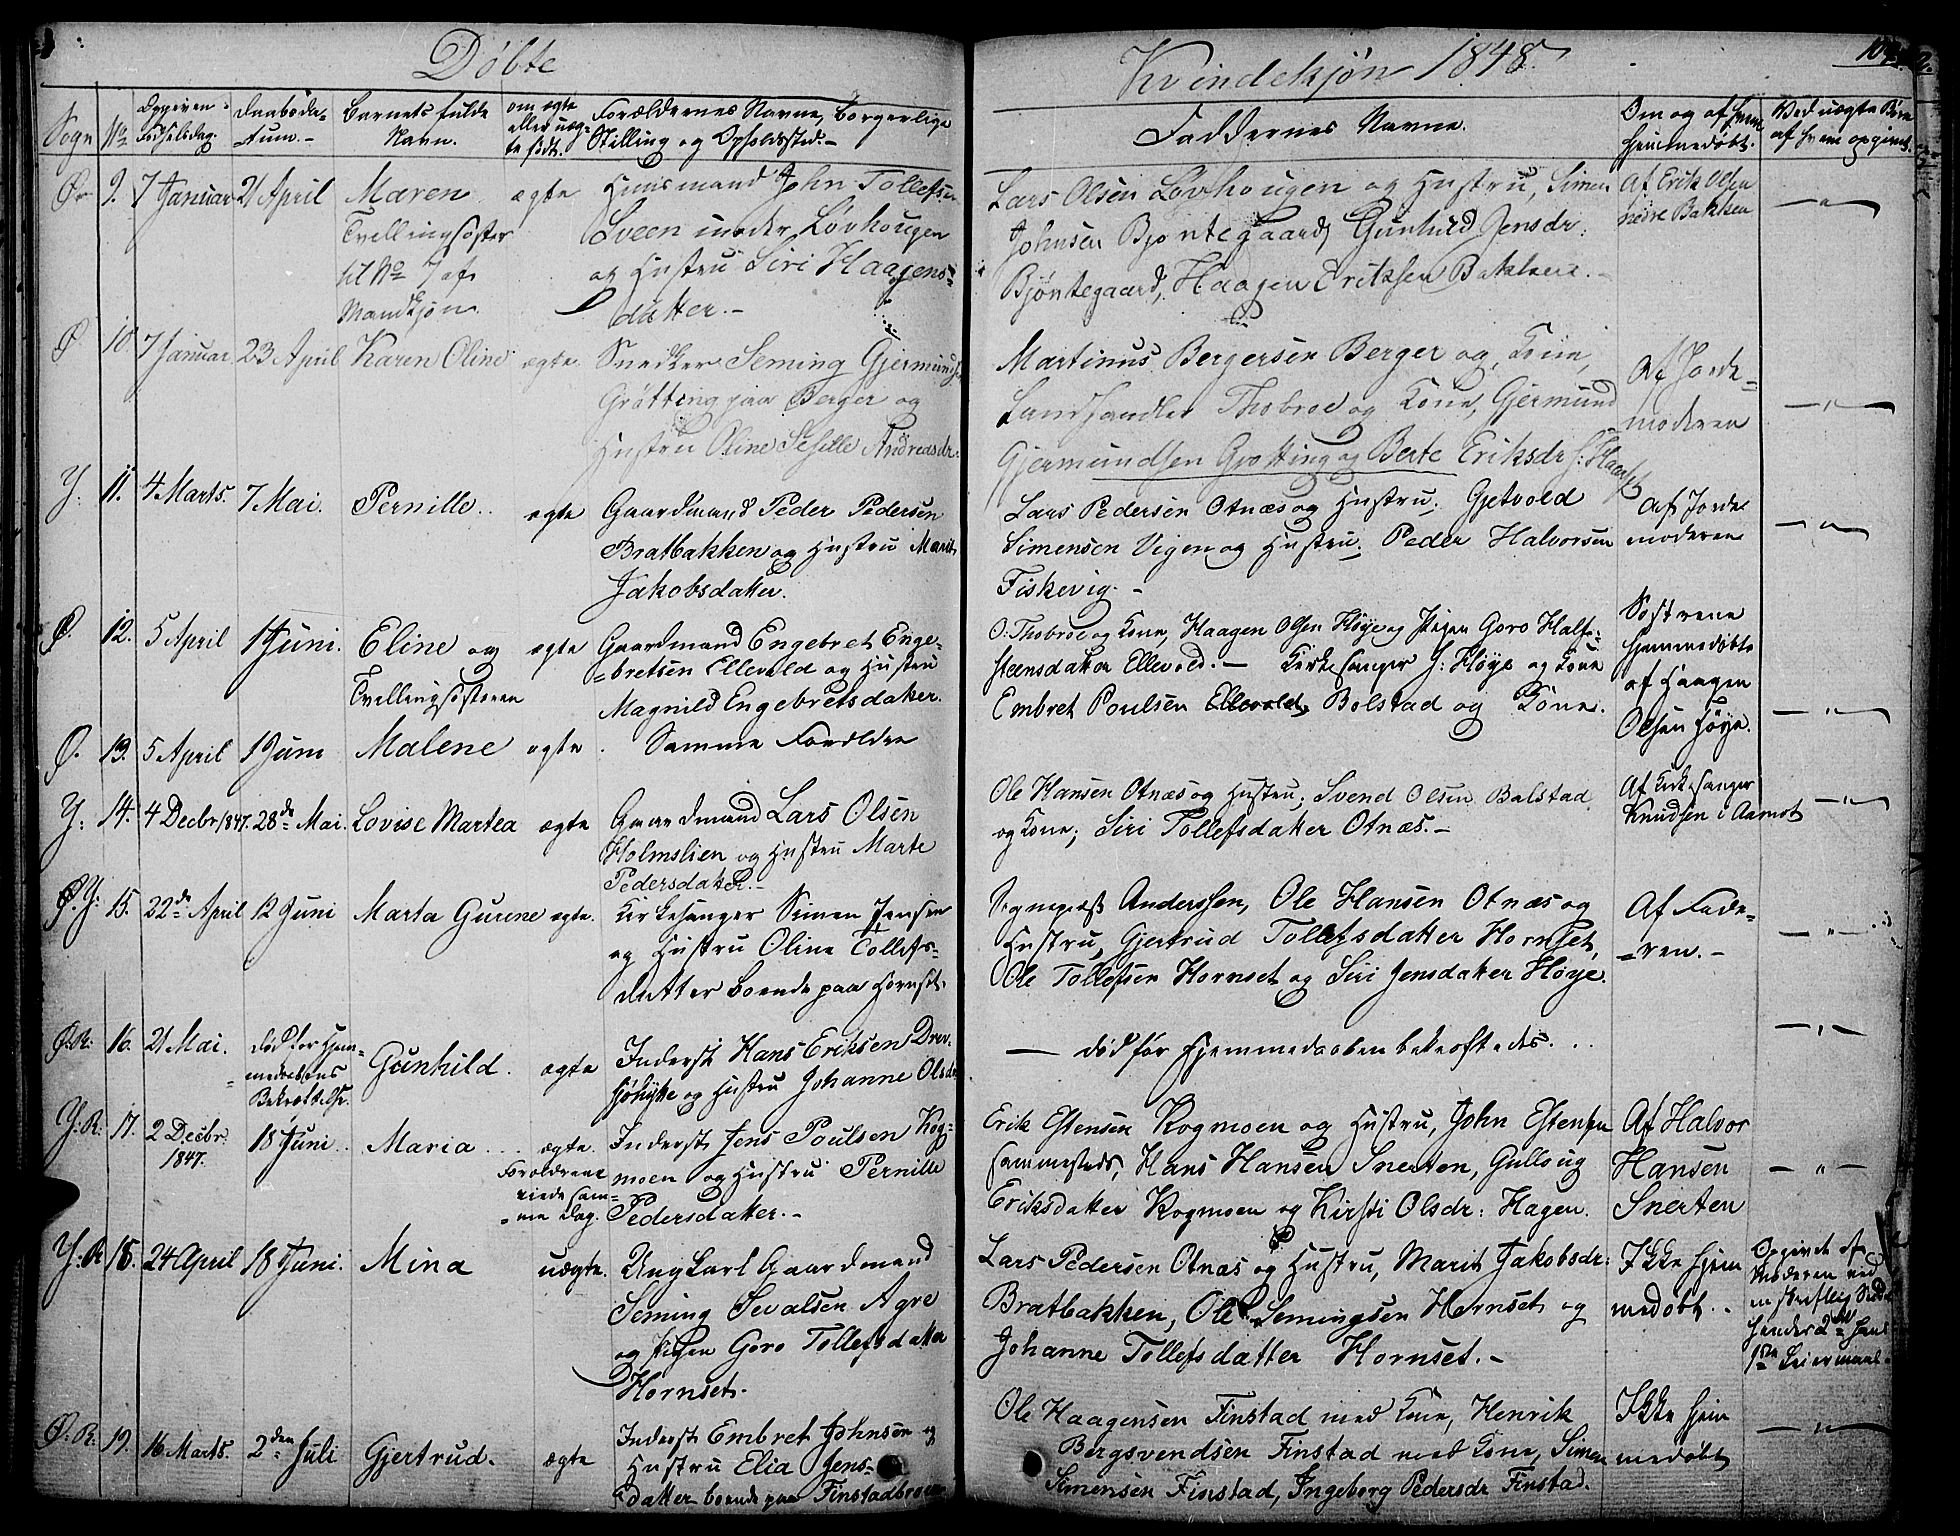 Døbte
Kvindekjøn 1848.
Sogn
No
Opgiven Fødselsdag.
Daabsdatum.
Barnets fulde Navn.
om ægte eller uægte født.
Forældrenes Navne, Borgerlige Stilling og Opholdssted.
Faddernes Navne.
Om og af hvem hjemmedøbt.
Ved uægte Børn af hvem opgivet.
Ør 9. 7 Januar 21 April
Maren
Tvellingsøster
til No 7 af
Mandkjøn.
ægte
Huusmand John Tollefsen
Sveen under Løvhougen
og Hustru Siri Haagens-
datter.
Lars Olsen Løvhougen og Hustru, Simen
Johnsen Bjøntegaard, Gunhild Jensdr.
Bjøntegaard, Haagen Eriksen Bakken.
Af Erik Olsen
nedre Bakken
Ø 10. 7 Januar 23 April
Karen Oline
ægte
Snedker Seming Gjermunds.
Grøtting paa Berger og
Hustru Oline Sesille Andreasdr.
Martinus Bergersen Berger og Kone,
Landhandler Thobroe og Kone, Gjermund
Gjermundsen Grøtting og Berte Eriksdr
Af Jorde-
moderen
Y: 11. 4 Marts. 7 Mai.
Pernille.
ægte
Gaardmand Peder Pedersen
Bratbakken og Hustru Marit
Jakobsdatter.
Lars Pedersen Otnæs og Hustru, Gjetvold
Simensen Vigen og Hustru, Peder Halvorsen
Fiskevig.
Af Jorde
moderen
Ø. 12. 5 April 1 Juni.
Eline og
Tvellingsøsteren
ægte
Gaardmand Engebret Enge-
bretsen Ellevold og Hustru
Magnild Engebretsdatter.
O: Thobroe og Kone, Haagen Olsen Høye og Pigen Goro Half-
steensdatter Ellevold. Kirkesanger J: Høye og Kone
Embret Poulsen Ellevold, Bolstad og Kone.
Søstrene
hjemmedøbte
af Haagen
Olsen Høye.
Ø. 13. 5 April 1 Juni
Malene
ægte
Samme Forældre
Y: 14. 4 Decbr 1847. 28de Mai.
Lovise Martea
ægte
Gaardmand Lars Olsen
Holmslien og Hustru Marte
Pedersdatter.
Ole Hansen Otnæs og Hustru, Svend Olsen Bolstad
og Kone; Siri Tollefsdatter Otnæs.
Af Kirkesanger
Knudsen i Aamot
Ø. Y: 15. 22de April 12 Juni
Marta Gurene
ægte.
Kirkesanger Simen Jensen
og Hustru Oline Tollefs-
datter boende paa Hornset.
Sognepræst Anderssen, Ole Hansen Otnæs og
Hustru, Gjertrud Tollefsdatter Hornset,
Ole Tollefsen Hornset og Siri Jensdatter Høye.
Af Fade-
ren.
Ø.R: 16. 21 Mai.
død før Hjem-
medaabens
Bekræftelse.
Gunhild.
ægte
Inderst Hans Eriksen Drev-
sjøhytte og Hustru Johanne Olsdr
død før Hjemmedaaben bekræftedes.
Y:R: 17. 2 Decbr. 1847. 18 Juni.
Maria
ægte.
Forældrene
viede sam-
me Dag.
Inderst Jens Poulsen Kog-
moen og Hustru Pernille
Pedersdatter.
Erik Estensen Kogmoen og Hustru, John Estensen
sammesteds, Hans Hansen Snerten, Gulloug
Eriksdatter Kogmoen og Kirsti Olsdr: Hagen.
Af Halvor
Hansen
Snerten
Y:R 18. 24 April 18 Juni.
Mina
uægte.
Ungkarl Gaardmand
Seming Sevalsen Agre
og Pigen Goro Tollefsdatter
Hornset.
Lars Pedersen Otnæs og Hustru, Marit Jakobsdr:
Bratbakken, Ole Semingsen Hornset og
Johanne Tollefsdatter Hornset.
Ikke hjem
medøbt.
Opgivet af
Moderen ved
en skriftlig
hendes 2det hans
1ste Leiermaal.
Ø:R: 19. 16 Marts. 2den Juli
Gjertrud.
ægte
Inderst Embret Johnsen og
Hustru Elia Jens-
datter boende paa Finstadbroen
Ole Haagensen Finstad med Kone, Henrik
Bergsvendsen Finstad med Kone, Simen
Simensen Finstad, Ingeborg Pedersdr Finstad.
Ikke hjem
medøbt